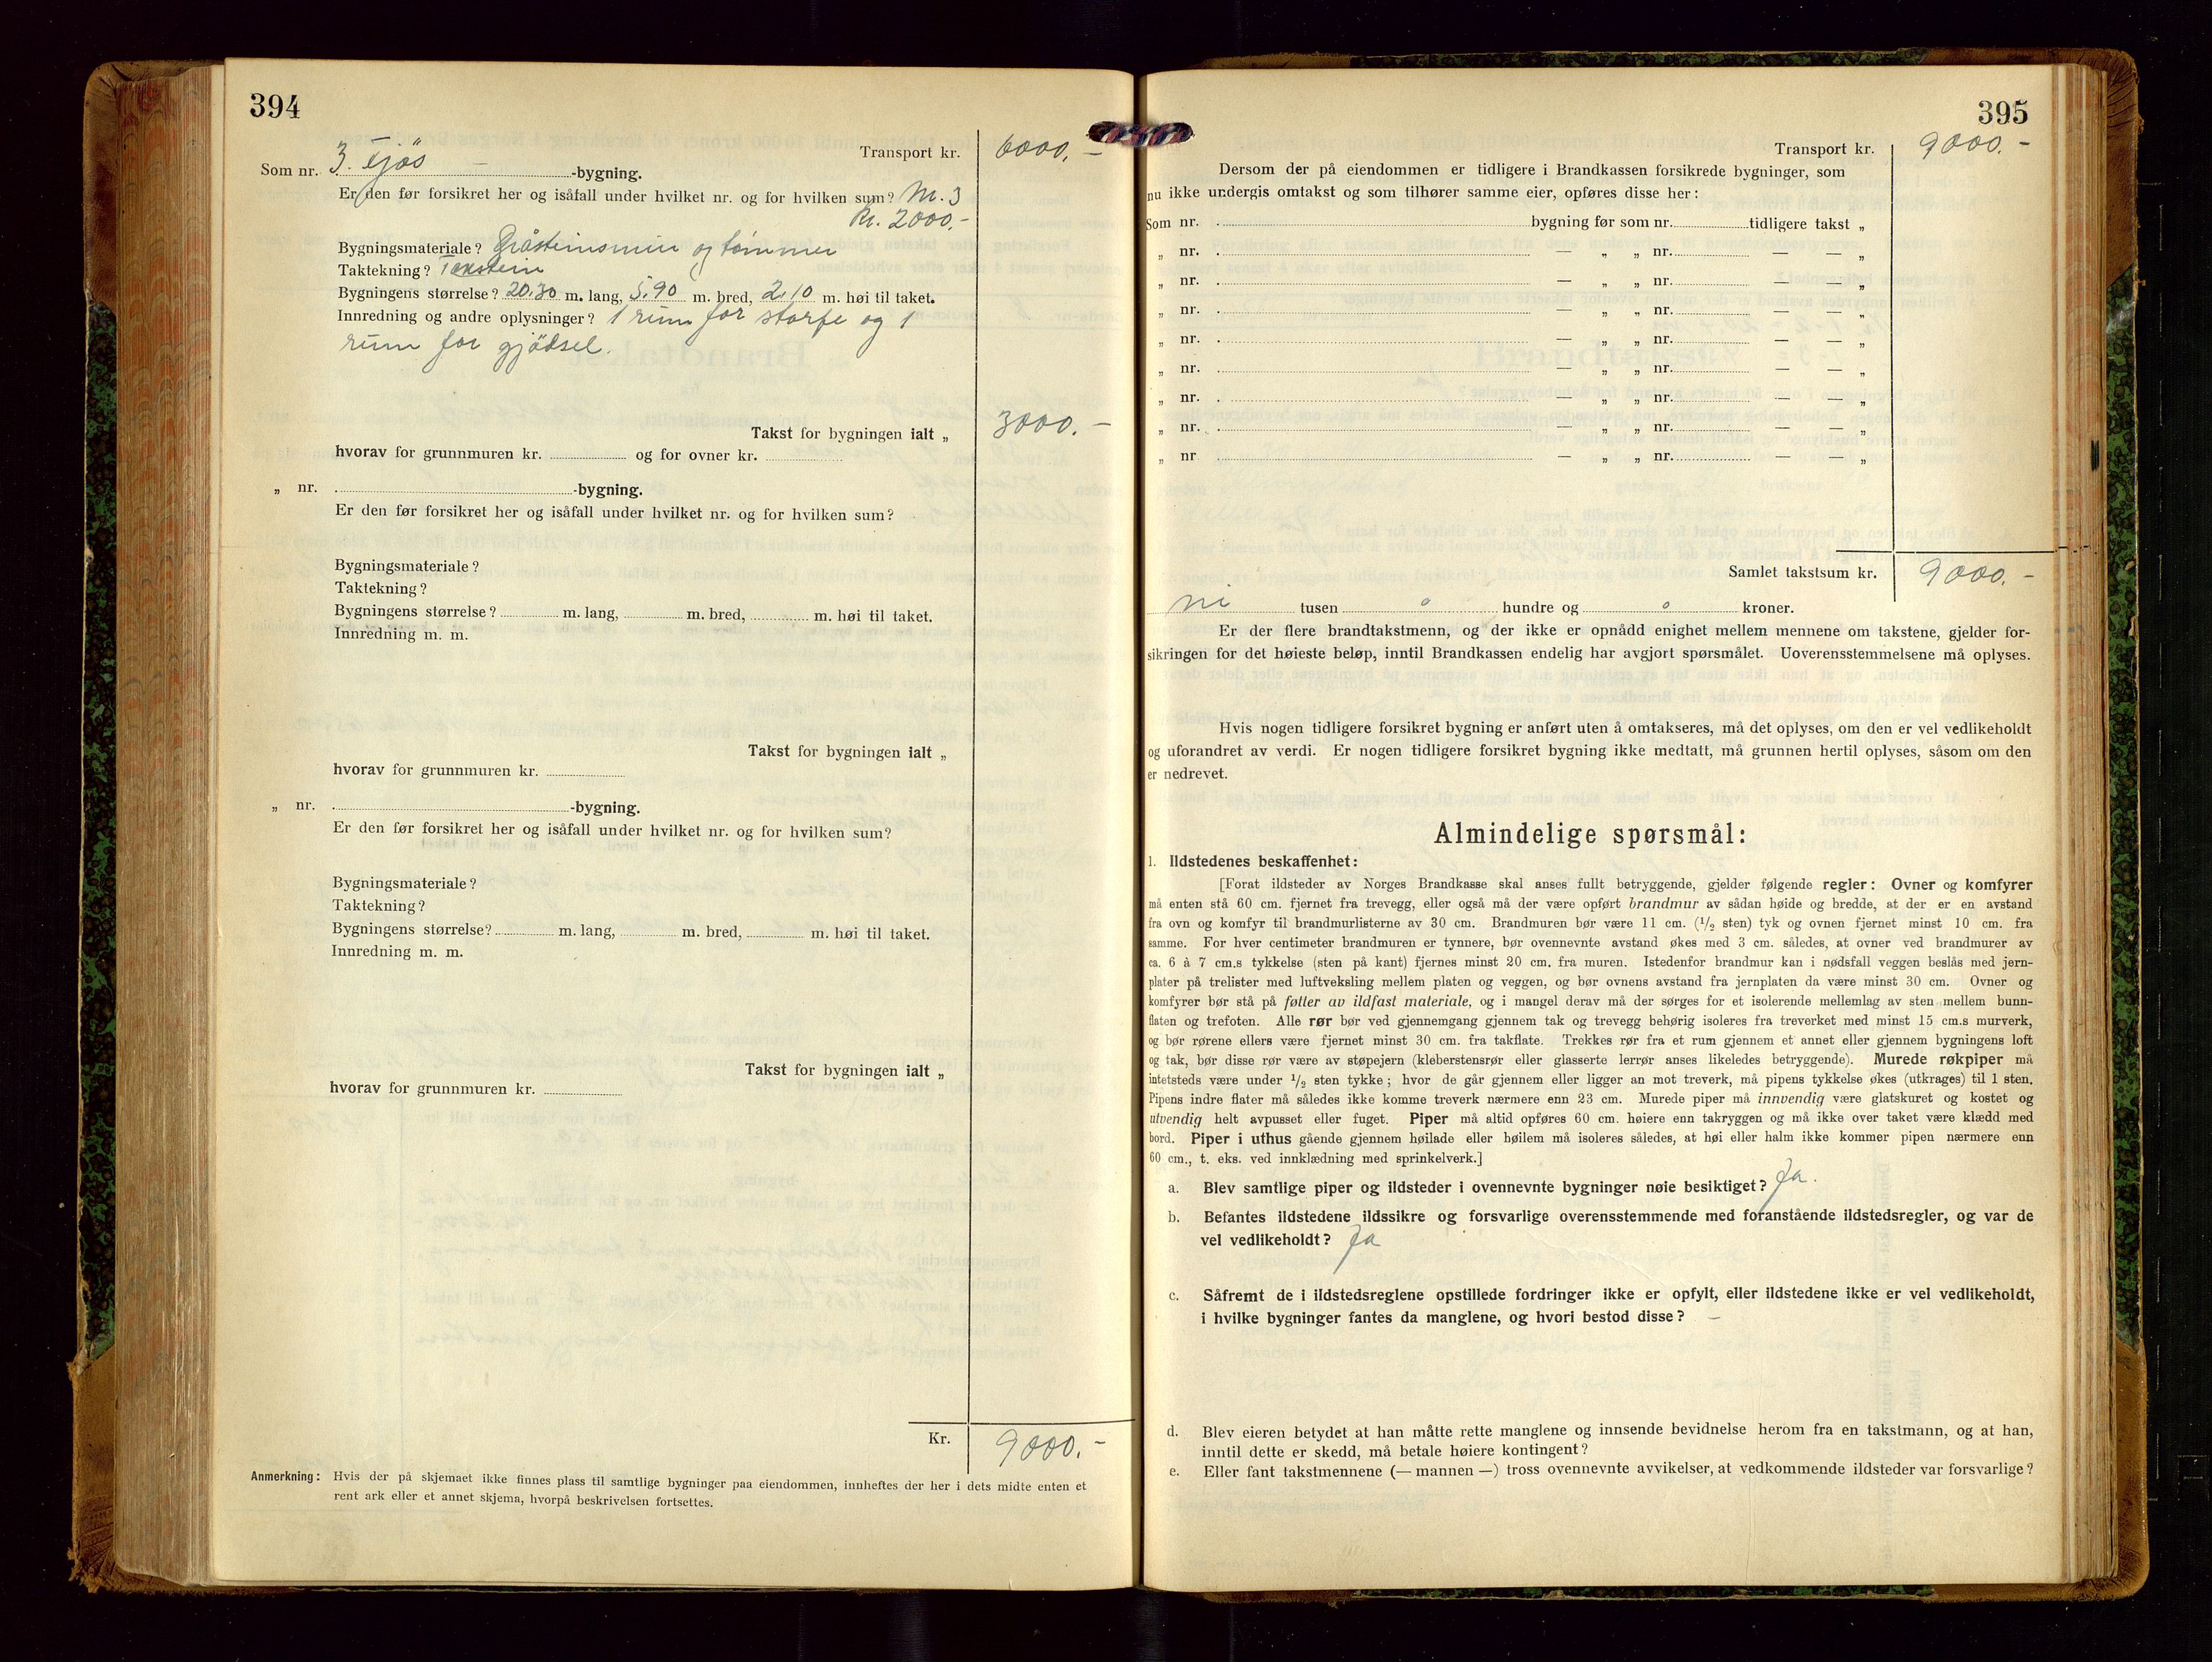 394
Transport kr. 6000.-
Som nr. 3. Fjøs -bygning.
Er den før forsikret her og isåfall under hvilket nr. og for hvilken sum? Nr. 3
Kr. 2000.-
Bygningsmateriale? Gråsteinsmur og tømmer
Taktekning? Takstein
Bygningens størrelse? 20.30 m. lang, 5.90 m. bred, 2.10 m. høi til taket.
Innredning og andre oplysninger? 1 rum for storfe og 1
rum for gjødsel.
Takst for bygningen ialt „ 3000.-
hvorav for grunnmuren kr. og for ovner kr.
„ nr. -bygning.
Er den før forsikret her og isåfall under hvilket nr. og for hvilken sum?
Bygningsmateriale?
Taktekning?
Bygningens størrelse? m. lang, m. bred, m. høi til taket.
Innredning m. m.
Takst for bygningen ialt „
hvorav for grunnmuren kr.
„ nr. -bygning.
Er den før forsikret her og isåfall under hvilket nr. og for hvilken sum?
Bygningsmateriale?
Taktekning?
Bygningens størrelse? m. lang, m. bred, m. høi til taket.
Innredning m. m.
Takst for bygningen ialt „
hvorav for grunnmuren kr.
Kr. 9000.-
Anmerkning: Hvis der på skjemaet ikke finnes plass til samtlige bygninger paa eiendommen, innheftes der her i dets midte enten et
rent ark eller et annet skjema, hvorpå beskrivelsen fortsettes.
395
Transport kr. 9000.-
Dersom der på eiendommen er tidligere i Brandkassen forsikrede bygninger, som
nu ikke undergis omtakst og som tilhører samme eier, opføres disse her:
Som nr. bygning før som nr. tidligere takst „
„ nr. — „ „ nr. — — „
„ nr. — „ „ nr. — — „
„ nr. — „ „ nr. — — „
„ nr. — „ „ nr. — — „
„ nr. — „ „ nr. — — „
„ nr. — „ „ nr. — — „
„ nr. — „ „ nr. — — „
„ nr — „ „ nr. — — „
Samlet takstsum kr. 9000.-
ni tusen o hundre og o kroner.
Er der flere brandtakstmenn, og der ikke er opnådd enighet mellem mennene om takstene, gjelder for-
sikringen for det høieste beløp, inntil Brandkassen endelig har avgjort spørsmålet. Uoverensstemmelsene må oplyses.
Hvis nogen tidligere forsikret bygning er anført uten å omtakseres, må det oplyses, om den er vel vedlikeholdt
og uforandret av verdi. Er nogen tidligere forsikret bygning ikke medtatt, må grunnen hertil oplyses, såsom om den
er nedrevet.
Almindelige spørsmål:
1. Ildstedenes beskaffenhet:
[Forat ildsteder av Norges Brandkasse skal anses fullt betryggende, gjelder følgende regler: Ovner og komfyrer
må enten stå 60 cm. fjernet fra trevegg, eller også må der være opført brandmur av sådan høide og bredde, at der er en avstand
fra ovn og komfyr til brandmurlisterne av 30 cm. Brandmuren bør være 11 cm. (1/2 sten) tyk og ovnen fjernet minst 10 cm. fra
samme. For hver centimeter brandmuren er tynnere, bør ovennevnte avstand økes med 3 cm. således, at ovner ved brandmurer av
ca. 6 à 7 cm.s tykkelse (sten på kant) fjernes minst 20 cm. fra muren. Istedenfor brandmur kan i nødsfall veggen beslås med jern-
plater på trelister med luftveksling mellem platen og veggen, og bør ovnens avstand fra jernplaten da være minst 30 cm. Ovner og
komfyrer bør stå på føtter av ildfast materiale, og i mangel derav må der sørges for et isolerende mellemlag av sten mellem bunn-
flaten og trefoten. Alle rør bør ved gjennemgang gjennem tak og trevegg behørig isoleres fra treverket med minst 15 cm.s murverk,
og bør rørene ellers være fjernet minst 30 cm. fra takflate. Trekkes rør fra et rum gjennem et annet eller gjennem bygningens loft
og tak, bør disse rør være av støpejern (kleberstensrør eller glasserte lerrør anses likeledes betryggende). Murede røkpiper må
intetsteds være under 1/2 sten tykke; hvor de går gjennem eller ligger an mot treverk, må pipens tykkelse økes (utkrages) til 1 sten.
Pipens indre flater må således ikke komme treverk nærmere enn 23 cm. Murede piper må innvendig være glatskuret og kostet og
utvendig helt avpusset eller fuget. Piper må altid opføres 60 cm. høiere enn takryggen og må ikke over taket være klædd med
bord. Piper i uthus gående gjennem høilade eller høilem må isoleres således, at høi eller halm ikke kommer pipen nærmere enn
60 cm., t. eks. ved innklædning med sprinkelverk.]
a. Blev samtlige piper og ildsteder i ovennevnte bygninger nøie besiktiget? Ja.
b. Befantes ildstedene ildssikre og forsvarlige overensstemmende med foranstående ildstedsregler, og var de
vel vedlikeholdt? Ja
c. Såfremt de i ildstedsreglene opstillede fordringer ikke er opfylt, eller ildstedene ikke er vel vedlikeholdt,
i hvilke bygninger fantes da manglene, og hvori bestod disse? –
d. Blev eieren betydet at han måtte rette manglene og innsende bevidnelse herom fra en takstmann, og at han,
inntil dette er skedd, må betale høiere kontingent?
e. Eller fant takstmennene (— mannen —) tross ovennevnte avvikelser, at vedkommende ildsteder var forsvarlige?